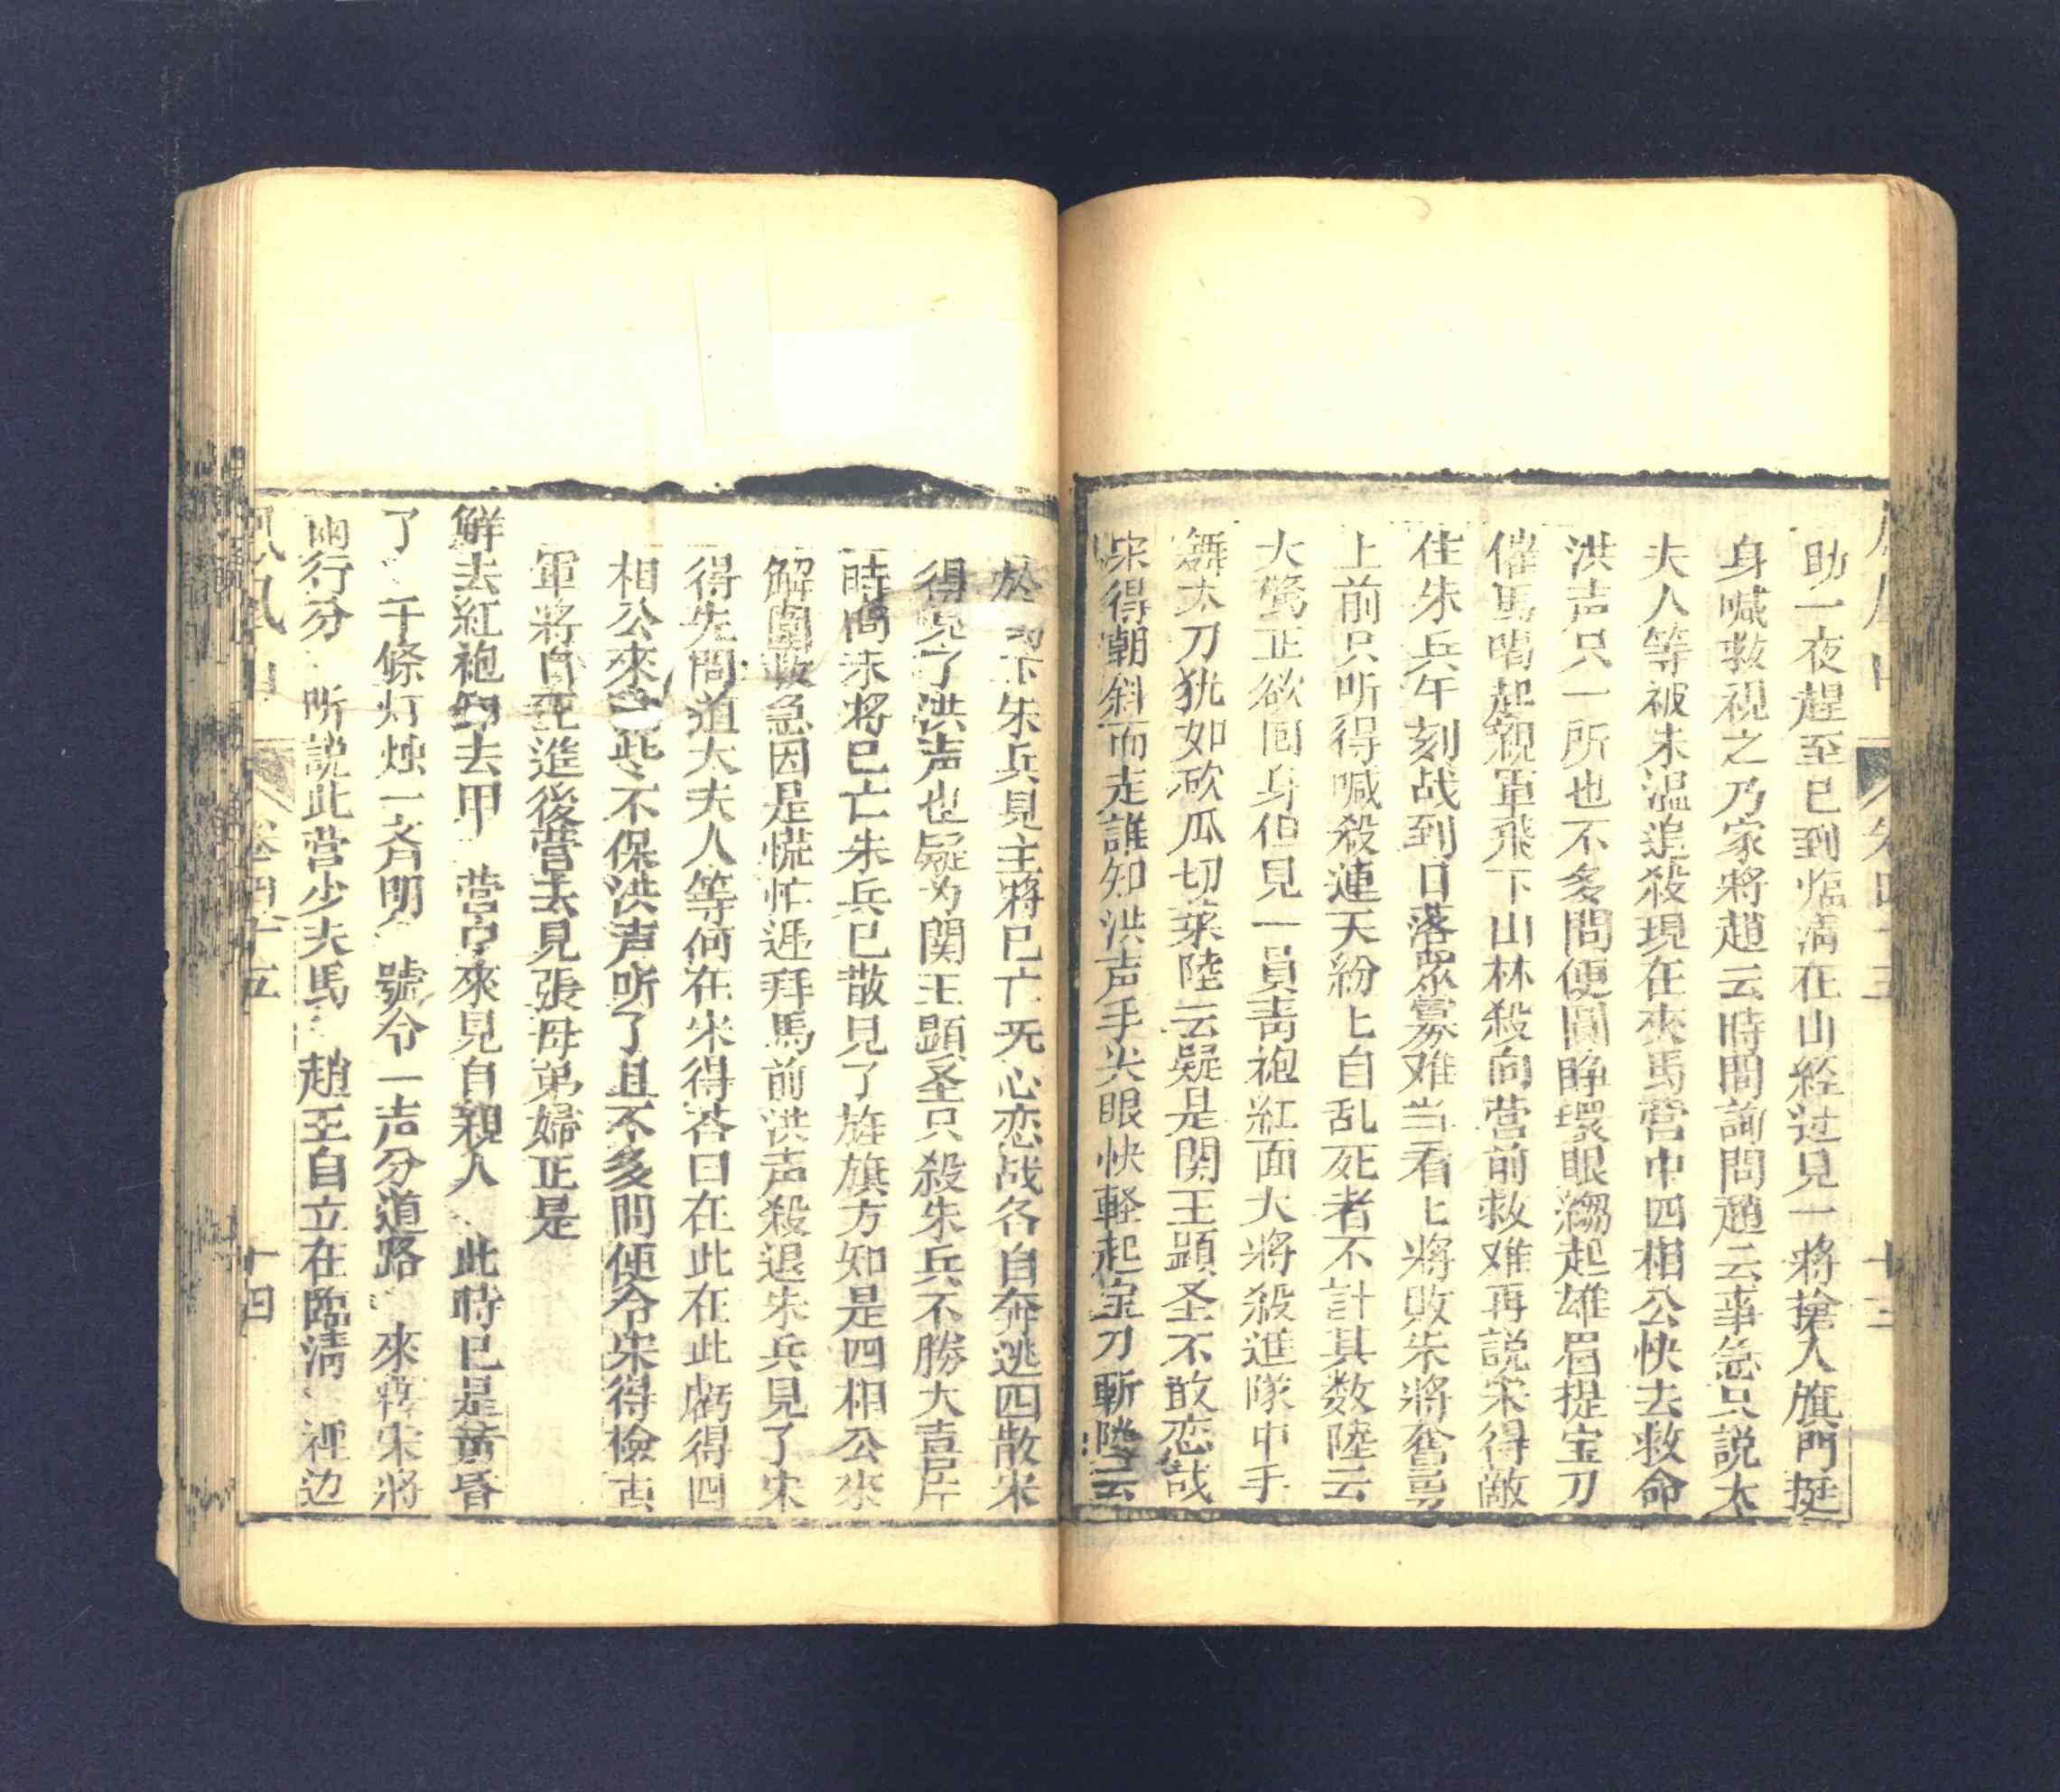 助一夜趕至已到临清在山経过見一將搶入旗門挺
身喊救視之乃家將趙云時間詢問趙云事急只説太
夫人等被朱温追殺現在夾馬营中四相公快去救命
洪声只一所也不多問便圓睁環眼縐起雄眉提宝刀
催馬喝起親軍飛下山林殺向营前救难再説宋得敵
住朱兵午刻战到日落衆寡难当看上將敗朱將奮勇
上前只听得喊殺連天紛上自乱死者不計其数陸云
大驚正欲囘身但見一員青袍紅面大將殺進隊中手
舞大刀犹如砍瓜切菜陸云疑是関王顕圣不敢恋战
宋得朝斜而走誰知洪声手尖眼快軽起宝刀斬陸云
於下朱兵見主將已亡无心恋战各自奔逃四散宋
得見了洪声也疑为関王顕圣只殺朱兵不勝大喜
時間朱将已亡朱兵已散見了旌旗方知是四相公來
解圍救急因是慌忙迎拜馬前洪声殺退朱兵見了宋
得先問道大夫人等何在宋得荅曰在此在此虧得四
相公來些不保洪声听了且不多問便令宋得檢点
軍將自己進後营去見張母弟婦正是
解去紅袍卸去甲 营内來見自親人 此時已是黄昏
了 千條灯烛一齐明 號令一声分道路 來宋將
両行分 听説此营少夫馬 趙王自立在臨清 裡边
鳳凰山 卷四十五 十四